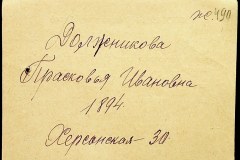 Должникова
Прасковья Ивановна
1894
Херсонская - 30